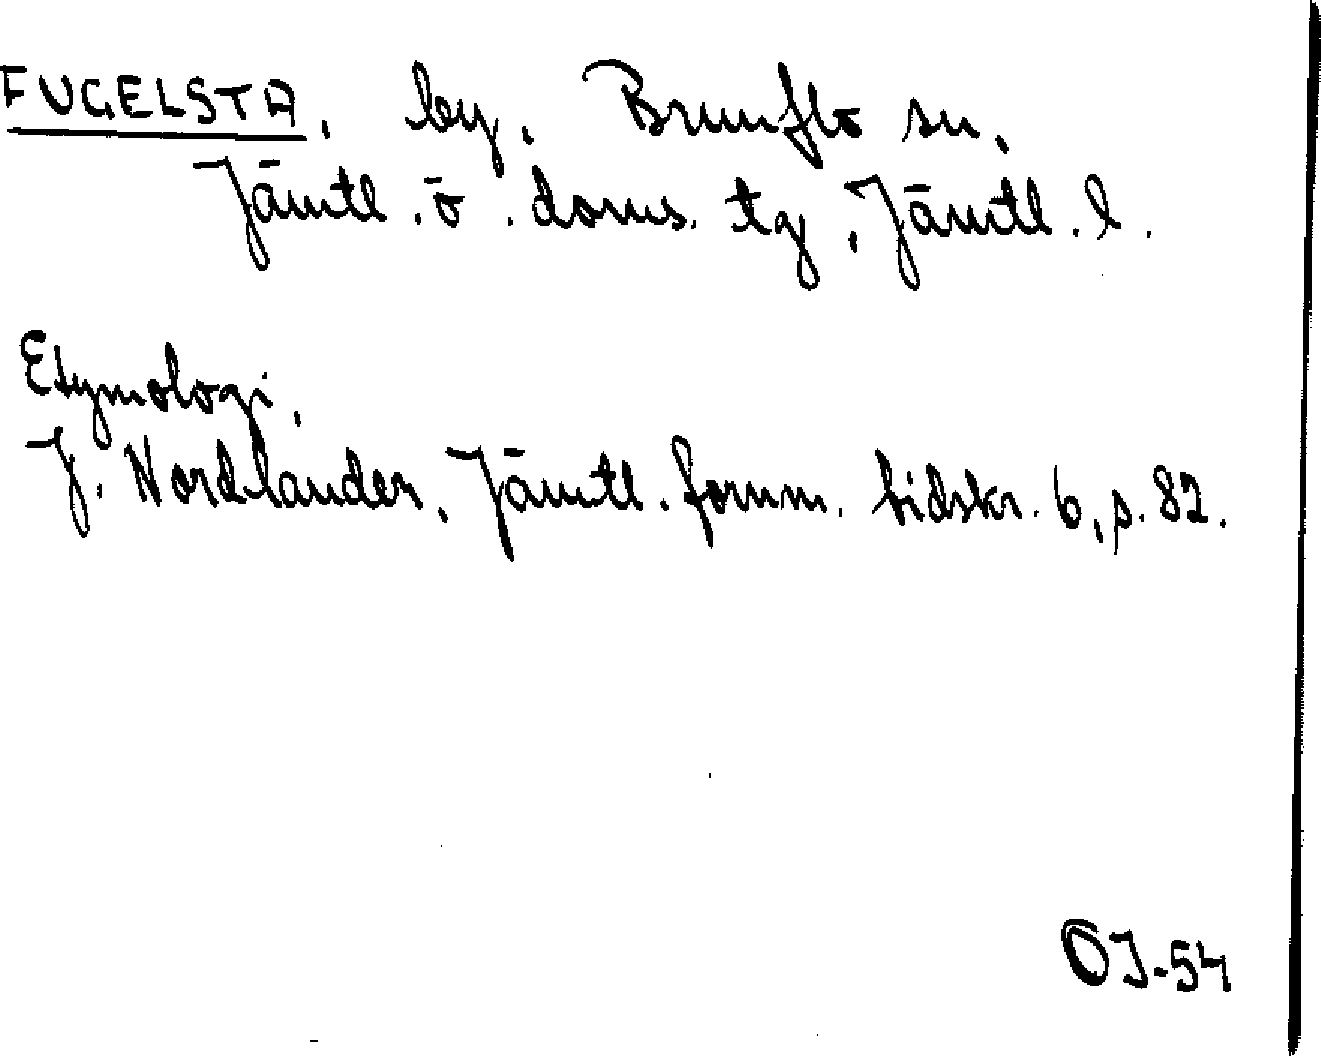 FUGELSTA, by, Brunflo sn,
Jämtl. ö. doms. tg, Jämtl. l.
Etymologi,
J. Nordlander, Jämtl. fornm. tidskr. 6, s. 82.
OJ-54